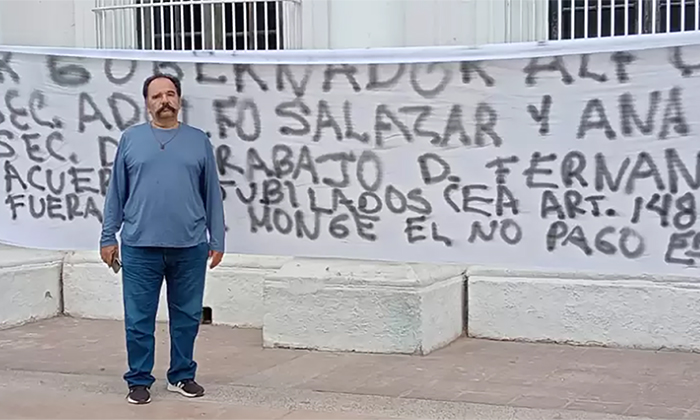 GOBERNADOR ALF
SEC. AD FO SALAZAR Y ANA
SEC. D TRABAJO D. TERNA
ACUER JUBILADOS CEA ART. 148
FUERA MONGE EL NO PAGO